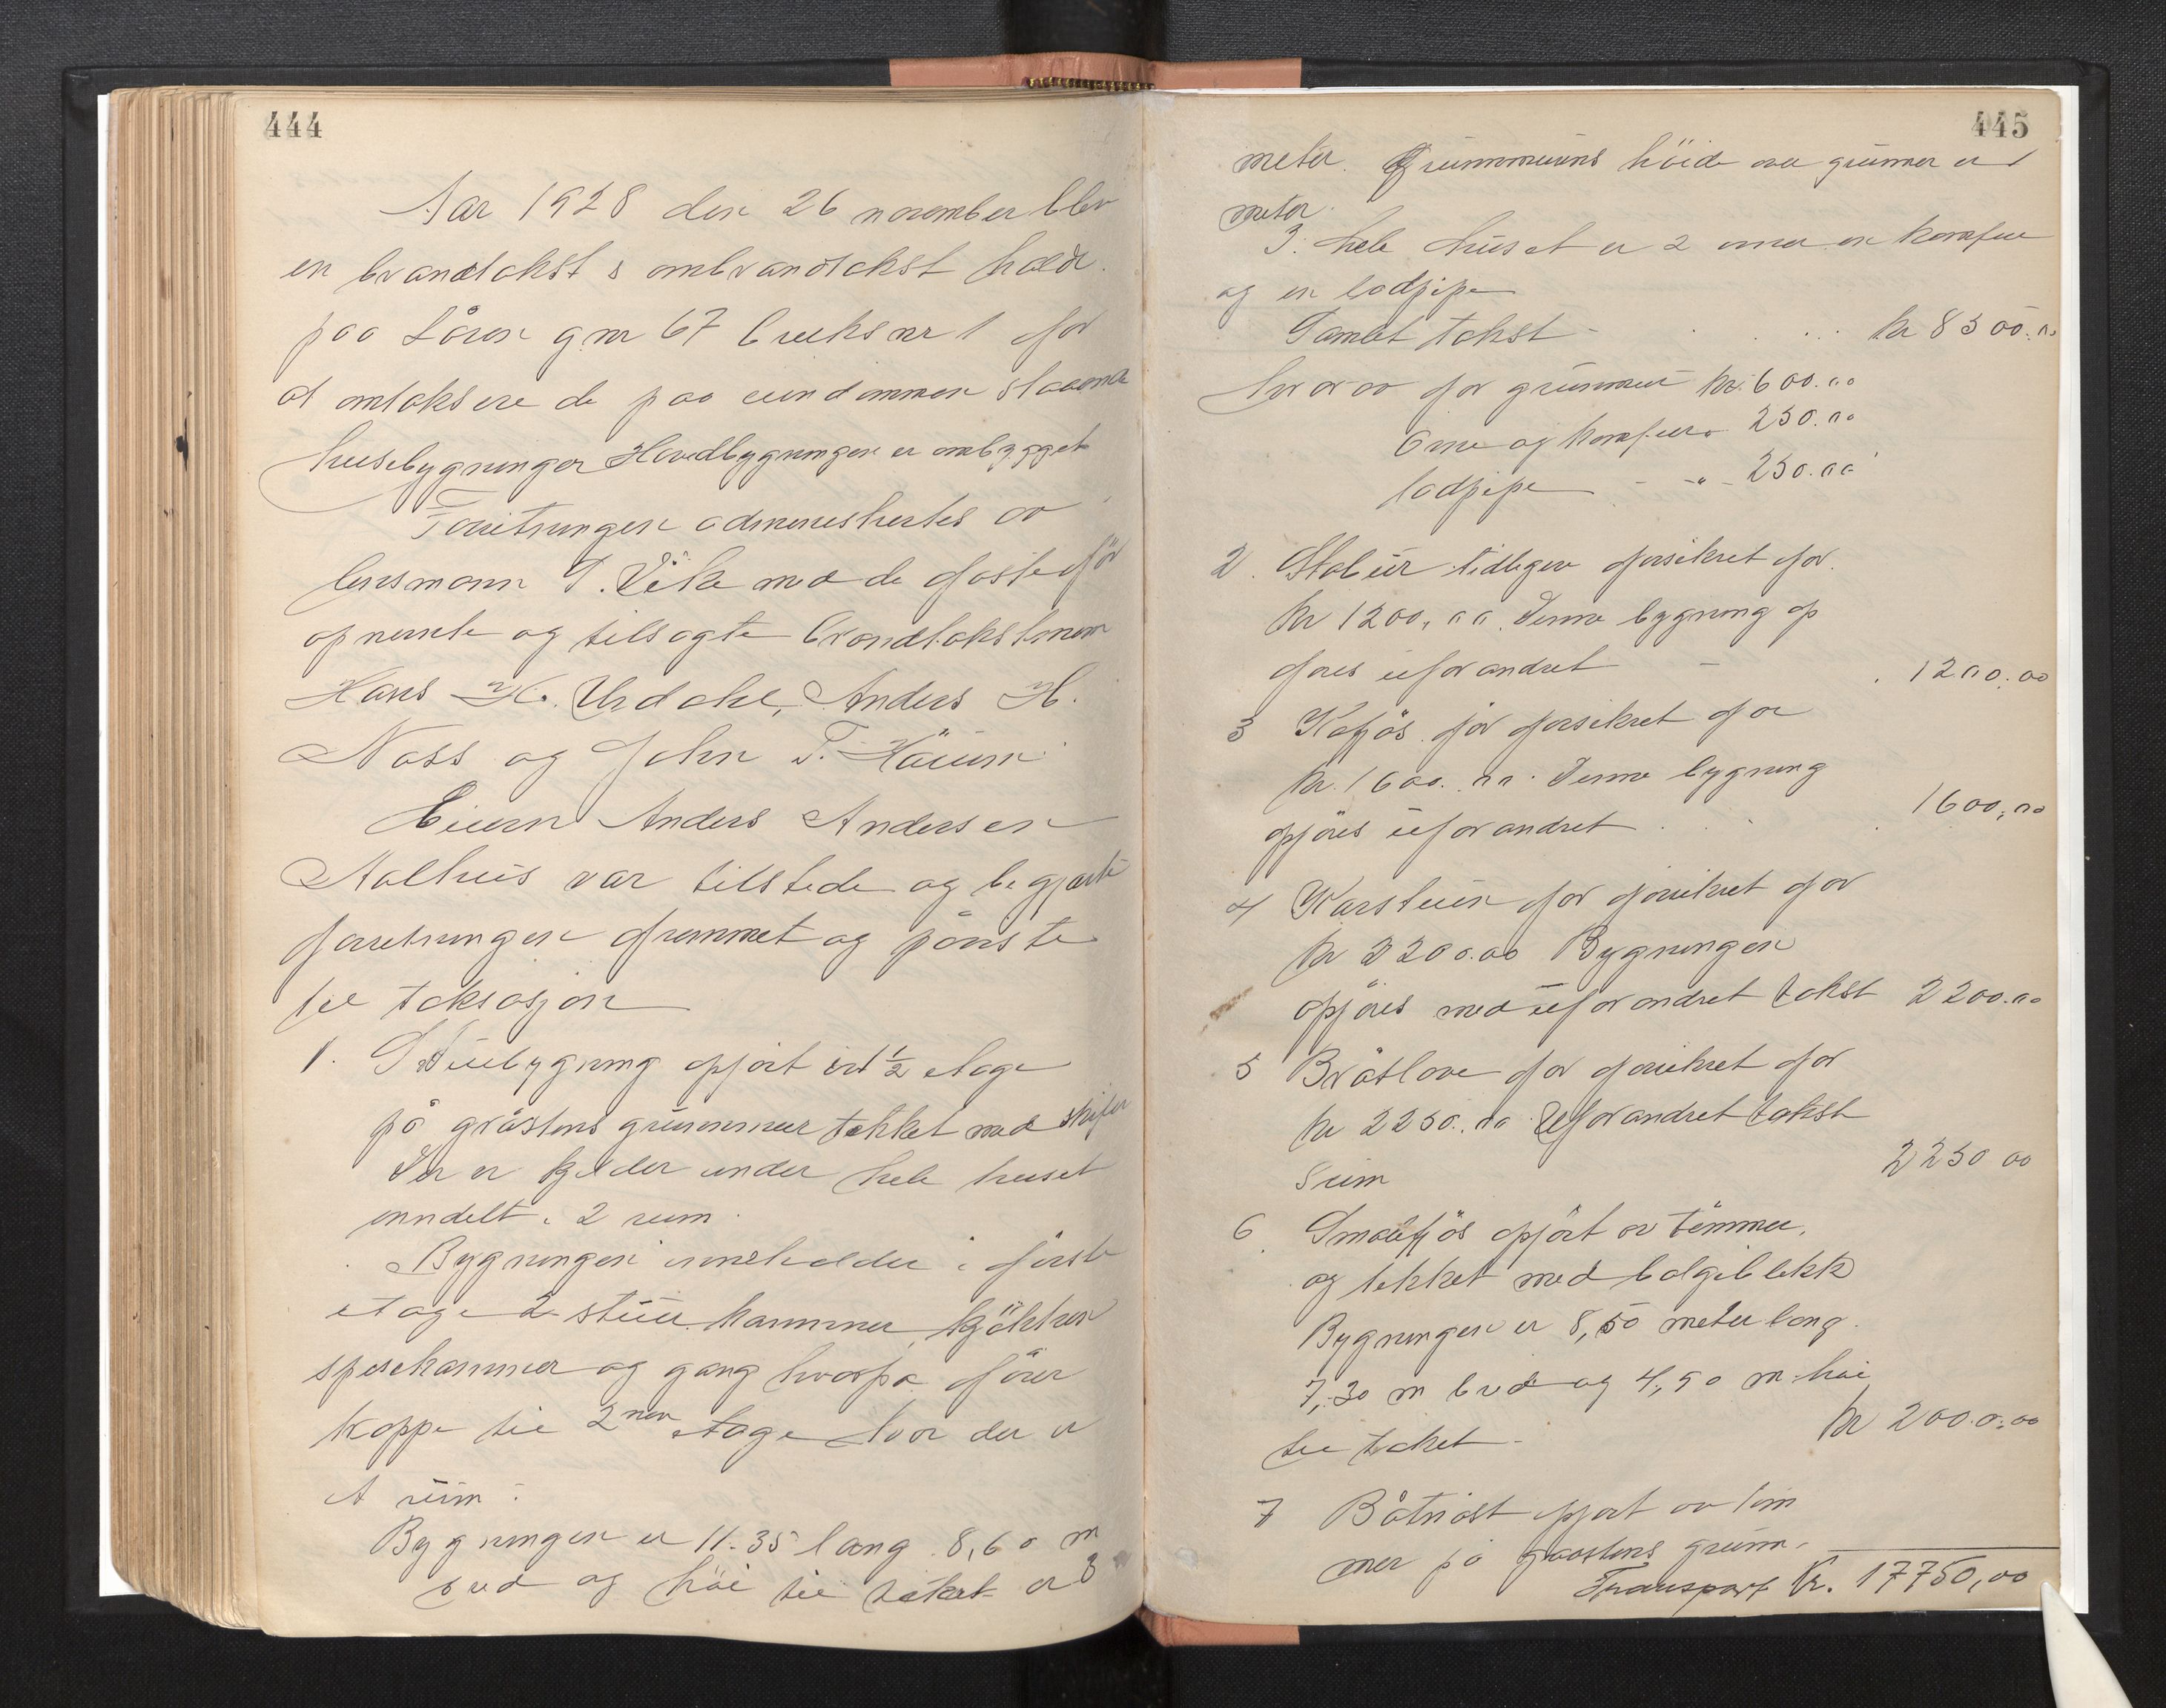 444
Aar 1928 den 26 november blev
en brandtakst s ombrandtakst holdt
paa Lören gnr 67 bruksnr 1 for
at omtaksere de paa eiendommen staaende
husebygninger Hovedbygningen er ombygget
Forretningen administrertes av
lensmann T. Vike med de faste før
opnevnte og tilsagte brandtakstmenn
Hans H. Urdahl, Anders H.
Nass og John T. Höium
Eieren Anders Andersen
Aalhus var tilstede og begjærte
forretningen fremmet og påviste
til taksasjon
1. Stuebygning opført i 1 1/2 etage
på gråstens grunnmur tekket med skifer
Der er kjelder under hele huset
inndelt i 2 rum.
Bygningen inneholder i første
etage 2 stuer kammer, kjökken
spisekammer og gang hvorfra fører
trappe til 2nen etage hvor der er
et rum.
Bygningen er 11.35 lang 8,60 m
bred og höi til taket er 3
445
meter. Grunnmurens höide over grunnen er 1
meter.
I hele huset er 2 ovner en komfur
og en ladpipe
Samlet takst - kr 8500.00
hvorav for grunnmur kr. 600.00
Ovne og komfur " 250.00
ladpipe - " - 250.00
2. Stabur tidligere forsikret for
kr 1200,00. Denne bygning op
føres uforandret - 1200.00
3 Kofjös før forsikret for
kr. 1600.00. Denne bygning
opføres uforandret 1600,00
4 Karstuen før forsikret for
kr 2200.00 Bygningen
opføres med uforandret takst 2200.00
5 Bråtlove før forsikret for
kr 2250.00 Uforandret takst
Sum 2250 00
6. Smalefjös opført av tömmer,
og tekket med bølgeblekk
Bygningen er 8,50 meter lang.
7,30 m bred og 4,50 m. höi
til taket - kr 2000.00
7 Båtnöst opført av töm
mer på graastens grunn-
Transport kr. 17750,00